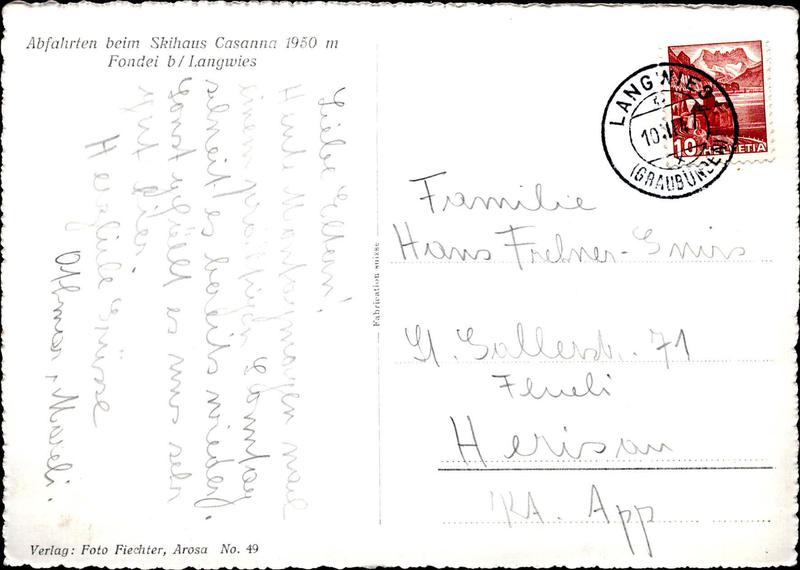 Abfahrten beim Skihaus Casanna 1950 m
Fondei b/Langwies
Liebe Eltern!
Heute Montagmorgen nach
einem prächtigen Sonntag
schneit es bereits wieder.
Sonst gefällt es uns sehr
gut hier.
Herzliche Grüsse
Othmar &
Fabrication suisse
LANGWIES
(GRAUBÜNDEN)
10
HELVETIA
Familie
Hans Frehner-
St. Gallerstr. 71
Herisau
App
Verlag: Foto Fiechter, Arosa No. 49